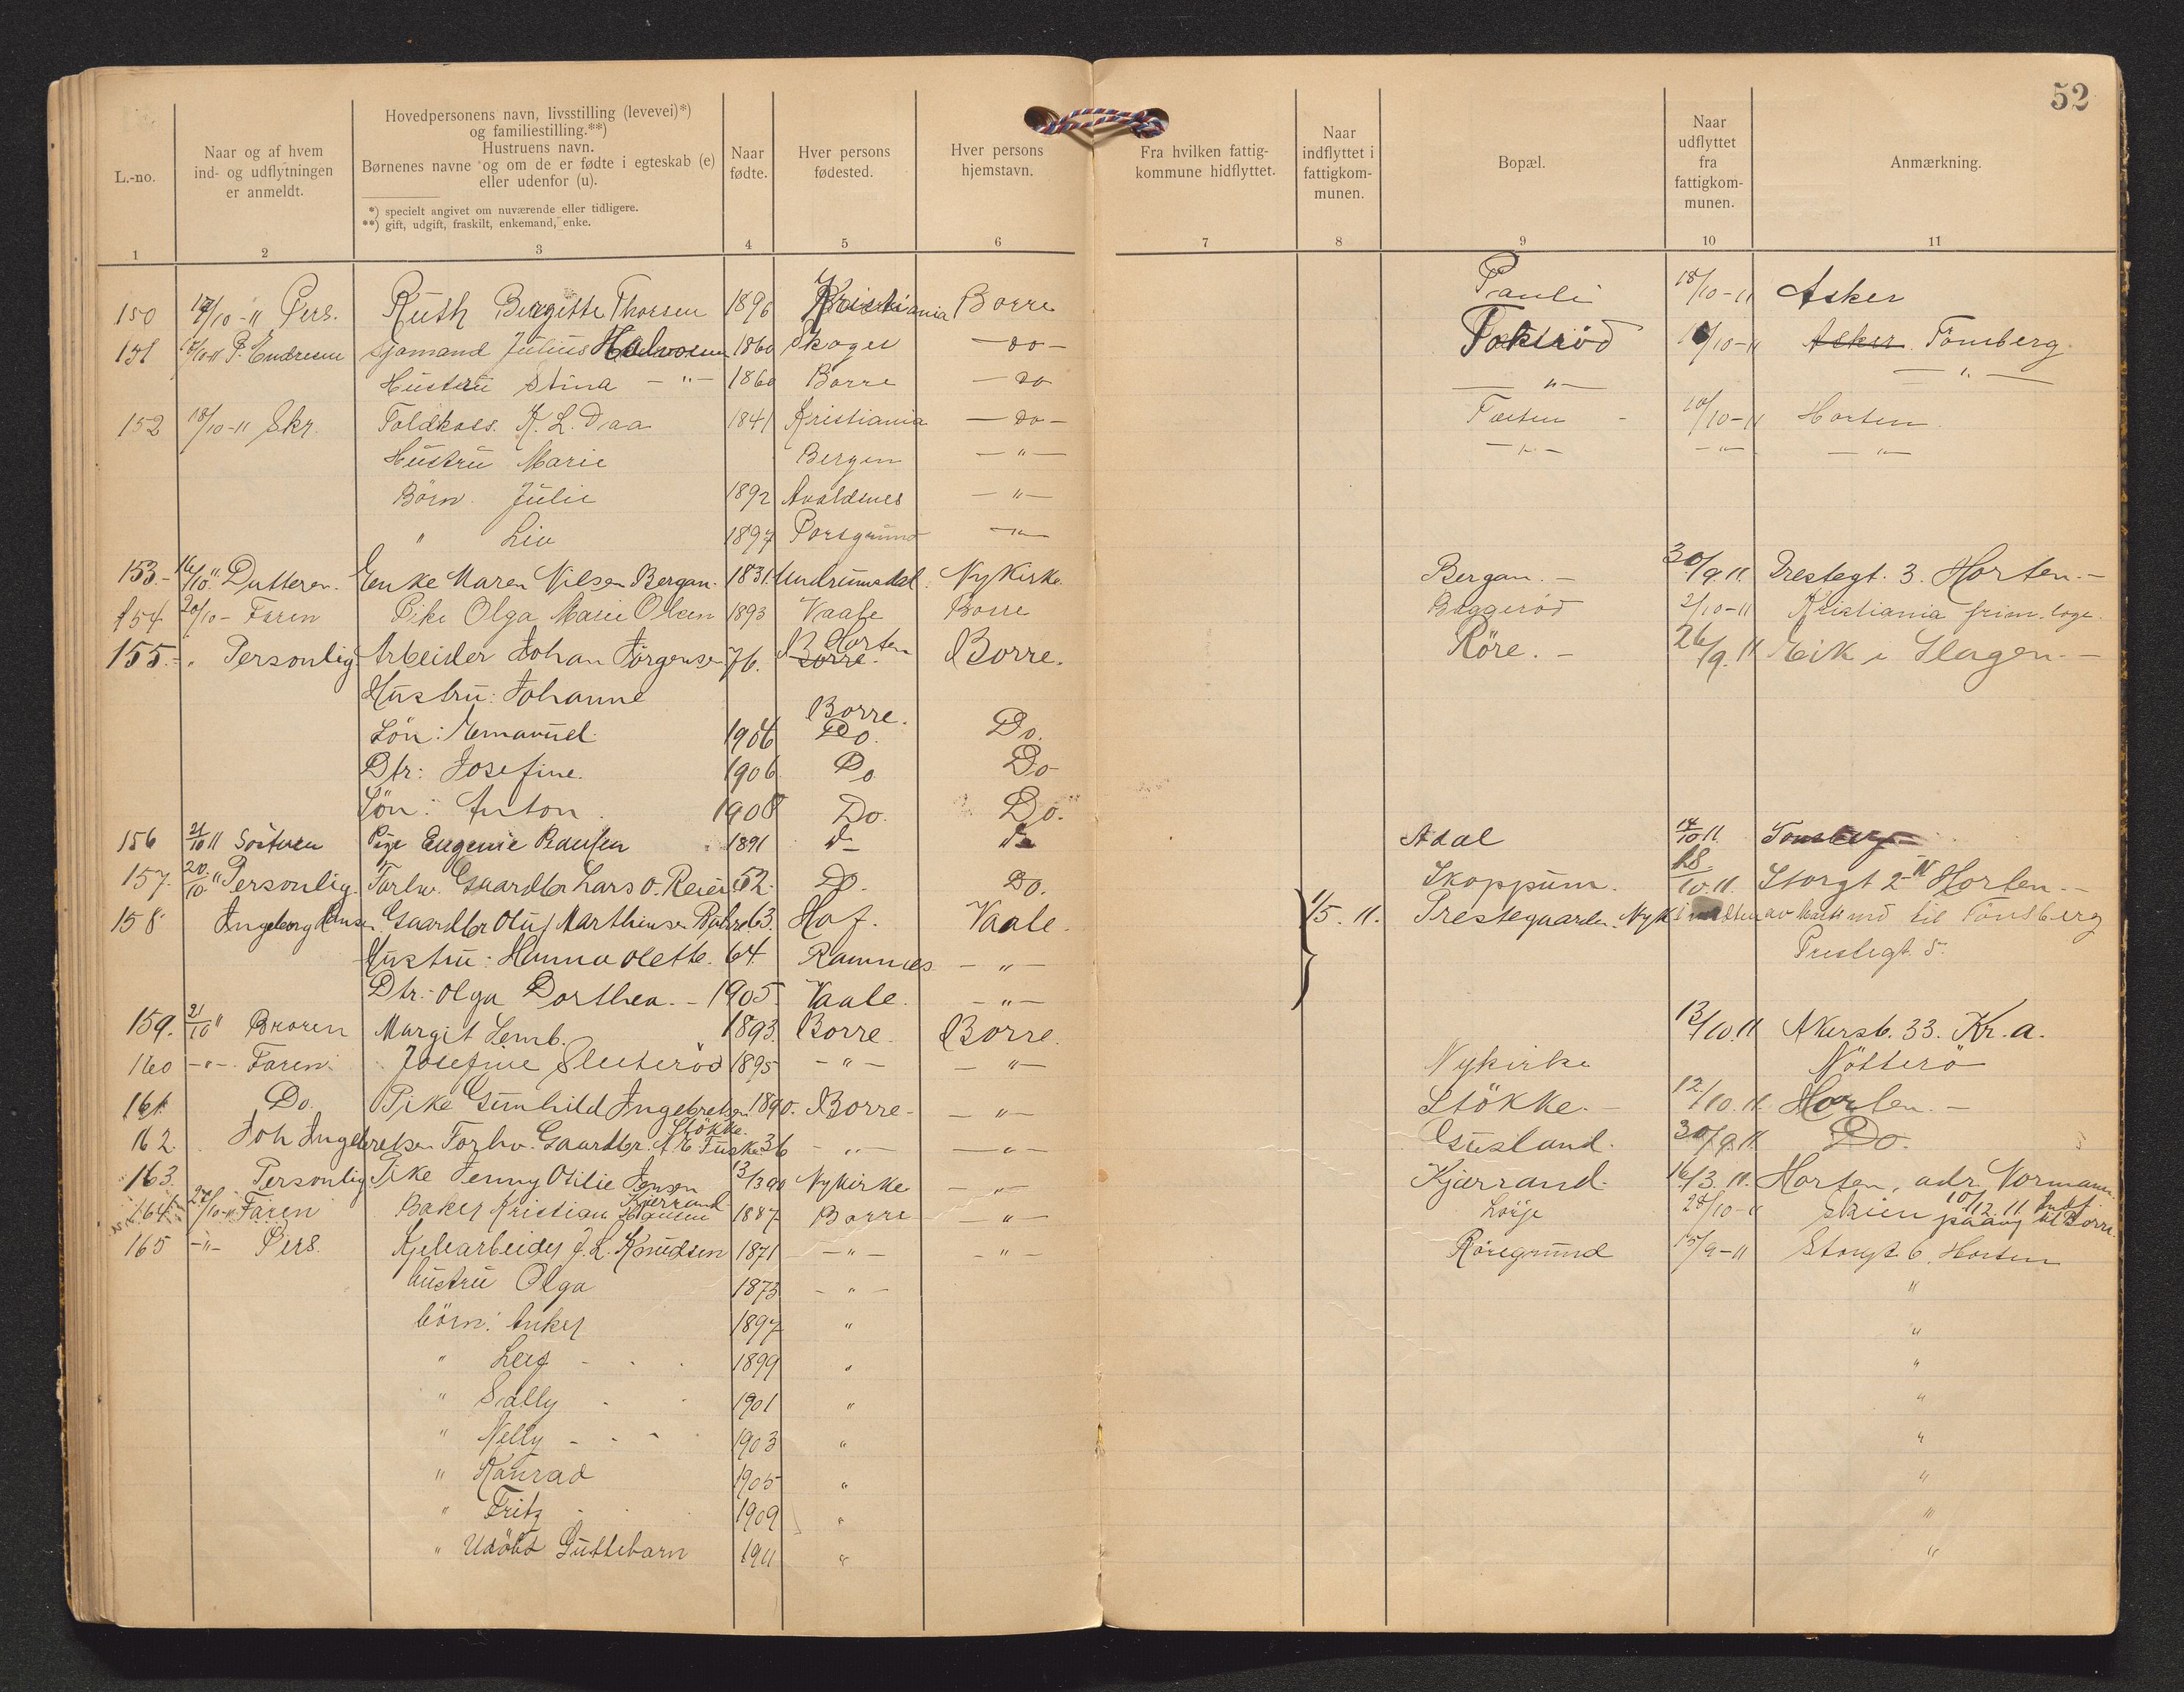 52
L.-no.
Naar og af hvem ind- og udflytningen er anmeldt.
Hovedpersonens navn, livsstilling (levevei)*) og familiestilling.**) Hustruens navn. Børnenes navne og om de er fødte i egteskab (e) eller udenfor (u).
*) specielt angivet om nuværende eller tidligere.
**) gift, udgift, fraskilt, enkemand, enke.
Naar fødte.
Hver persons fødested.
Hver persons hjemstavn.
Fra hvilken fattigkommune hidflyttet.
Naar indflyttet i fattigkommunen.
Bopæl.
Naar udflyttet fra fattigkommunen.
Anmærkning.
1 2 3 4 5 6 7 8 9 10 11
150 17/10-11 Pers. Ruth Birgitte Thorsen 1896 Kristiania Borre Pauli 18/10-11 Asker
151 P. Endresen Sjømand Julius Halvorsen 1860 Skoger -do- Fokserød /10-11 Asker Tønsberg
Hustru Stina - " - 1860 Borre -do - " - - " -
152 18/10-11 Skr. Toldkass. K. L. Daa 1841 Kristiania -do- 10/10-11 Horten
Hustru Marie Bergen - " - - " - - " - - " -
Børn Julie 1892 Avaldsnes - " -
" Liv 1897 Porsgrund - " -
153.- 16/10 " Datteren. Enke Maren Nilsen Bergan. 1831. Undrumsdal. Nykirke. Bergan. - 30/9 11. Prestegt. 3. Horten. -
154 20/10 - Faren Pike Olga Marie Olsen 1893 Vaale Borre Baggerød 2/10-11 Kristiania frim. loge.
155.- " Personlig. Arbeider Johan Jørgensen 76. Borre. Horten Borre. Røre. - 26/9. 11 Eik i Slagen. -
Hustru: Johanne Borre.
Søn: Emanuel. 1906 Do. Do.
Dtr: Josefine. 1906 Do Do
Søn: Anton. 1908 Do. Do.
156 21/10 11 Søsteren Pige Eugenie Paulsen 1891 d- d- Adal 14/10 11. Tønsberg
157. 20./10. " Personlig. Forhv. Gaardbr Lars O. Reier 52. Do. Do. Skoppum. 18/10.11. Storgt 2 Horten. -
158 Ingeborg Hansen Gaardbr Oluf Marthinsen 63. Hof. Vaale. 1/5. 11. Prestegaarden. Nyk til Tønsberg
Hustru: Hanna Olette. 64. Ramnes - " - Prestegt. 5.
Dtr.- Olga Dorthea. - 1905. Vaale. - " -
159. 21/10 " Broren Margit Lemb. 1893. Borre. Borre. 13/10. 11 Akersb. 33. Kr.a.
160 - " - Faren. Josefine Sletterød 1895 - " - - " - Nykirke Nøtterø
161 Do. Pike Gunhild Ingebretsen. 1890. Borre - - " - Støkke. - 12/10. 11. Horten. -
Støkke.
162. Joh Ingebretsen Forhv. Gaardbr. A. E Fuske 36 - " - - " - 30/9. 11. Do.
163. Personlig Pike Jenny Otilie Jensen 13/3 90 Nykirke - " - Kjærrand. 16/3. 11. Horten, adr. Normann.
Kjærrand
164 27/10-11 Faren Baker Kristian Hansen 1887 Borre - " - Lørje 28/10-11 Skien 10/12. 11 Indf. paany til Borre.
165 - " - Pers. Kjelearbeider J. L. Knudsen 1871 - " - - " - Røregrund 15/9-11 Storgt 6. Horten
hustru Olga 1873 - " - "
børn: Anker 1897 " "
" Leif - . . 1899 " "
" Sally . . 1901 " "
" Nelly - - - . 1903 " "
" Konrad 1905 " "
" Fritz . . 1909 " "
" Udøbt Guttebarn 1911 " "